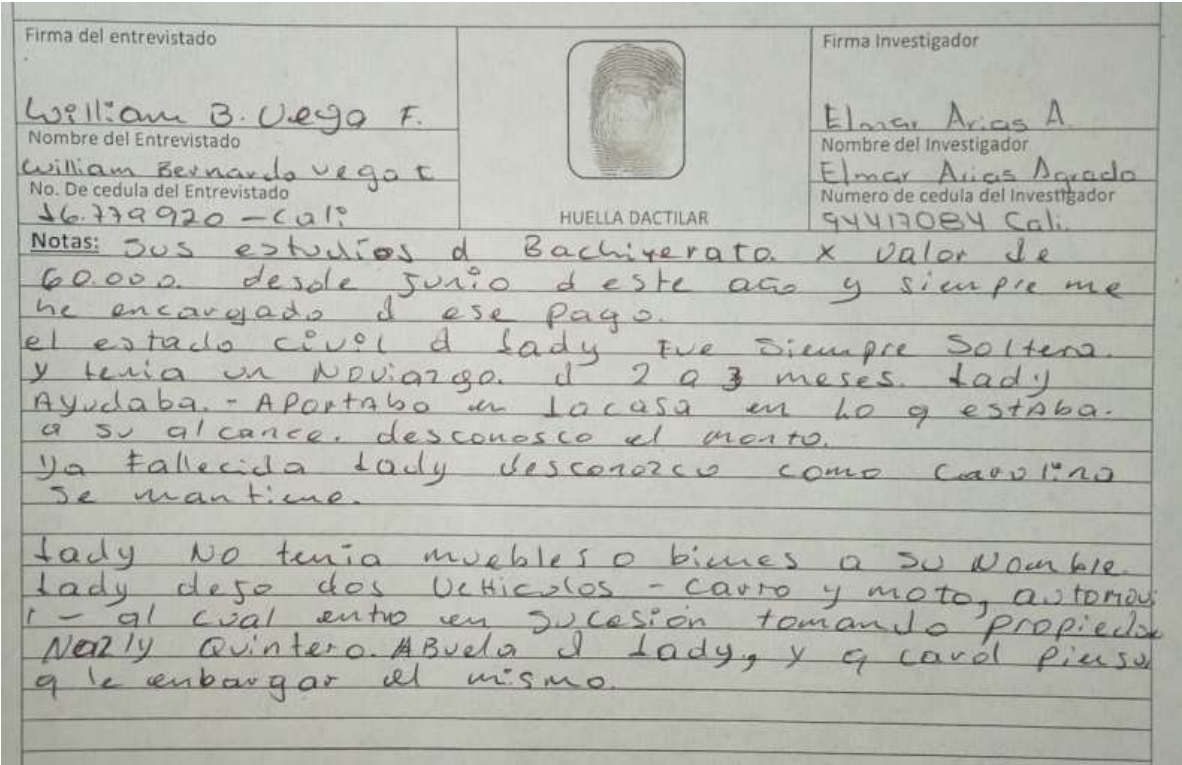 Firma del entrevistado
William B. Vega F.
Nombre del Entrevistado
William Bernardo Vega F
No. De cedula del Entrevistado
16.779920 - Cali
HUELLA DACTILAR
Firma Investigador
Elmar Arias A.
Nombre del Investigador
Elmar Arias Agrado
Numero de cedula del Investigador
94417084 Cali.
Notas: Sus estudios d Bachiyerato. x valor de
60.000. desde Junio d este año y siempre me
he encargado d ese pago.
el estado civil d Lady Fue Siempre Soltera.
y tenia un Noviazgo. d 2 a 3 meses. Lady
Ayudaba. - APortAba en La casa en Lo q estAba.
a su alcance. desconosco el monto.
ya Fallecida Lady desconozco como Carolina
se mantiene.
Lady No tenia muebles o bienes a su Nombre.
Lady dejo dos VeHiculos - carro y moto, automov
- al cual entro en Sucesión tomando propieda
Nazly Quintero. ABuela d Lady, y q carol Piensa
q le enbargar el mismo.